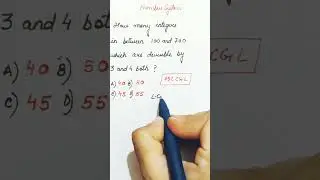 Number System
3 and 4 both:
How many integers
in between 100 and
which are divisible by
3 and 4 both ?
A) 40 B) 50
C) 45 D) 55
A) 40 B) 50
C) 45 D) 55
SSC CGL
L.C